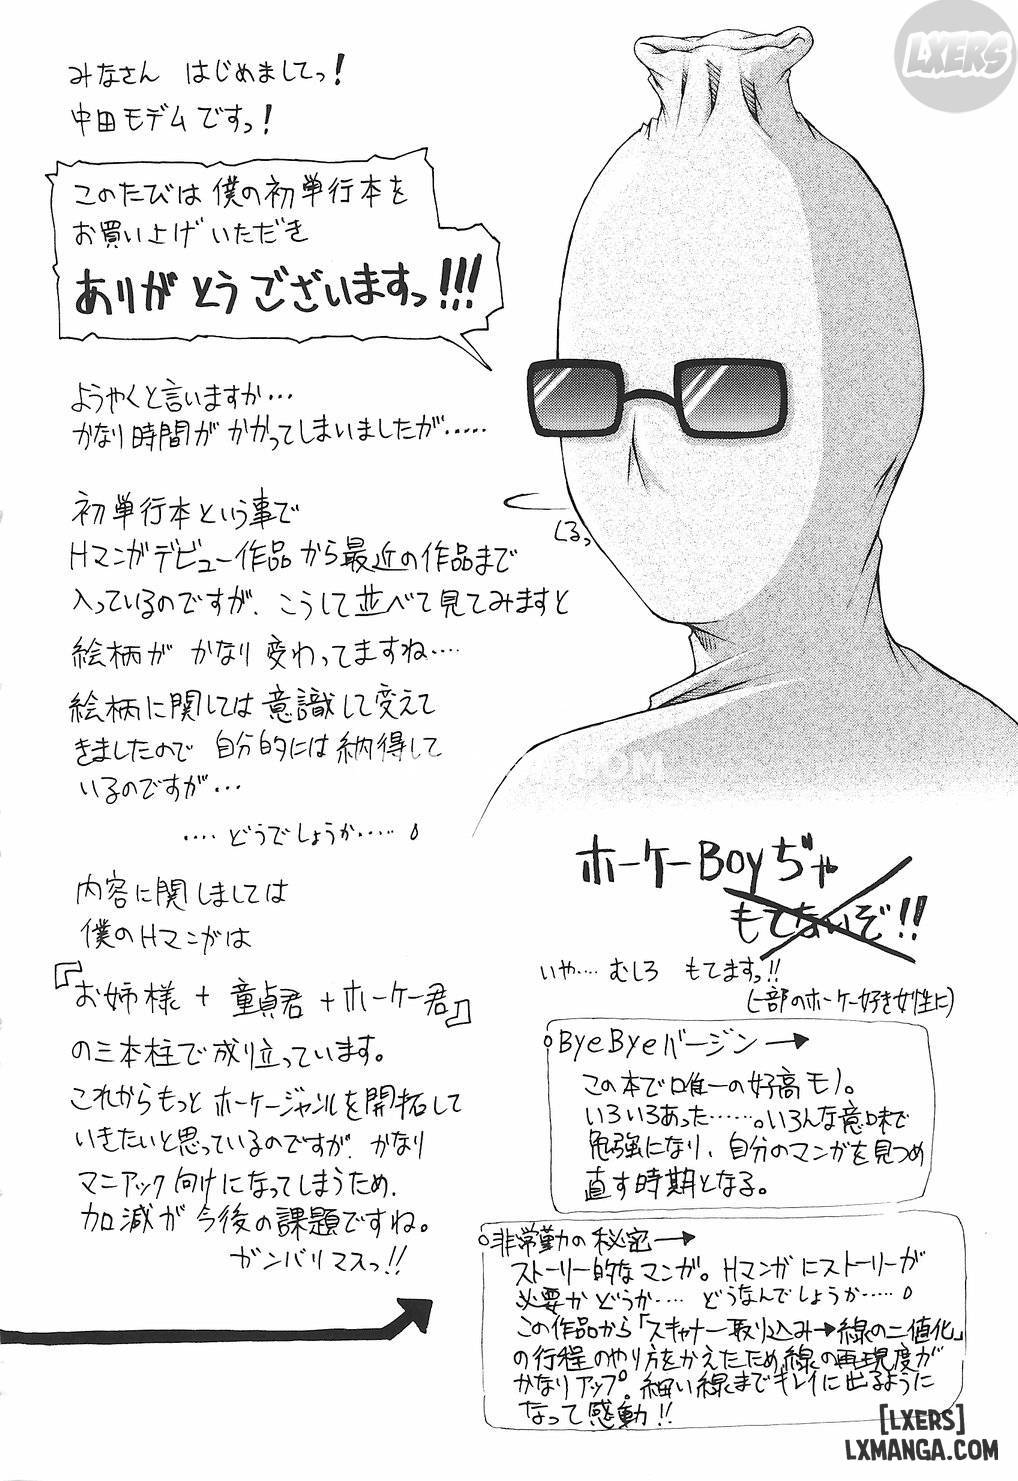 LXERS
みなさん はじめましてっ!
中田モデムですっ!
このたびは僕の初単行本を
お買い上げいただき
ありがとうございますっ!!!
ようやくと言いますか…
かなり時間がかかってしまいましたが……
くるっ
初単行本という事で
Hマンガデビュー作品から最近の作品まで
入っているのですが、こうして並べて見てみますと
絵柄が かなり変わってますね….
絵柄に関しては意識して変えて
きましたので 自分的には納得して
いるのですが…
….どうでしょうか…..
内容に関しましては
僕のHマンガは
『お姉様+童貞君+ホーケー君』
の三本柱で成り立っています。
これからもっとホーケージャンルを開拓して
いきたいと思っているのですが、かなり
マニアック向けになってしまうため、
加減が今後の課題ですね。
ガンバリマスっ!!
ホーケーBoyぢゃ
もてないぞ!!
いや…. むしろ もてますっ!!
(一部のホーケー好き女性に)
ByeByeバージン→
この本で唯一の好高モノ。
いろいろあった……。いろんな意味で
勉強になり、自分のマンガを見つめ
直す時期となる。
非常勤の秘密→
ストーリー的なマンガ。Hマンガにストーリーが
必要かどうか…. どうなんでしょうか…..
この作品から「スキャナー取り込み→線の二値化」
の行程のやり方をかえたため線の再現度が
かなりアップ。細い線までキレイに出るように
なって感動!!
[LXERS]
LXMANGA.COM